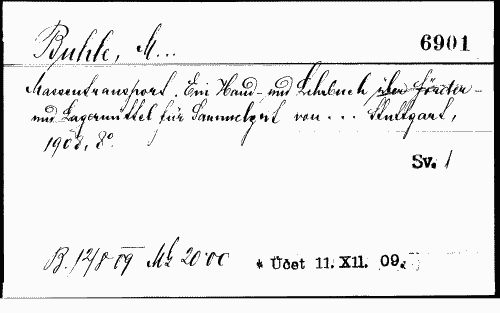 Buhle, M...
6901
Massentransport. Ein Hand- und Lehrbuch über Förder-
und Lagermittel für Sammelgut von ... Stuttgart,
1908, 8°.
Sv. 1
B. 12/8 09 Mk 20·00 * Účet 11. XII. 09.